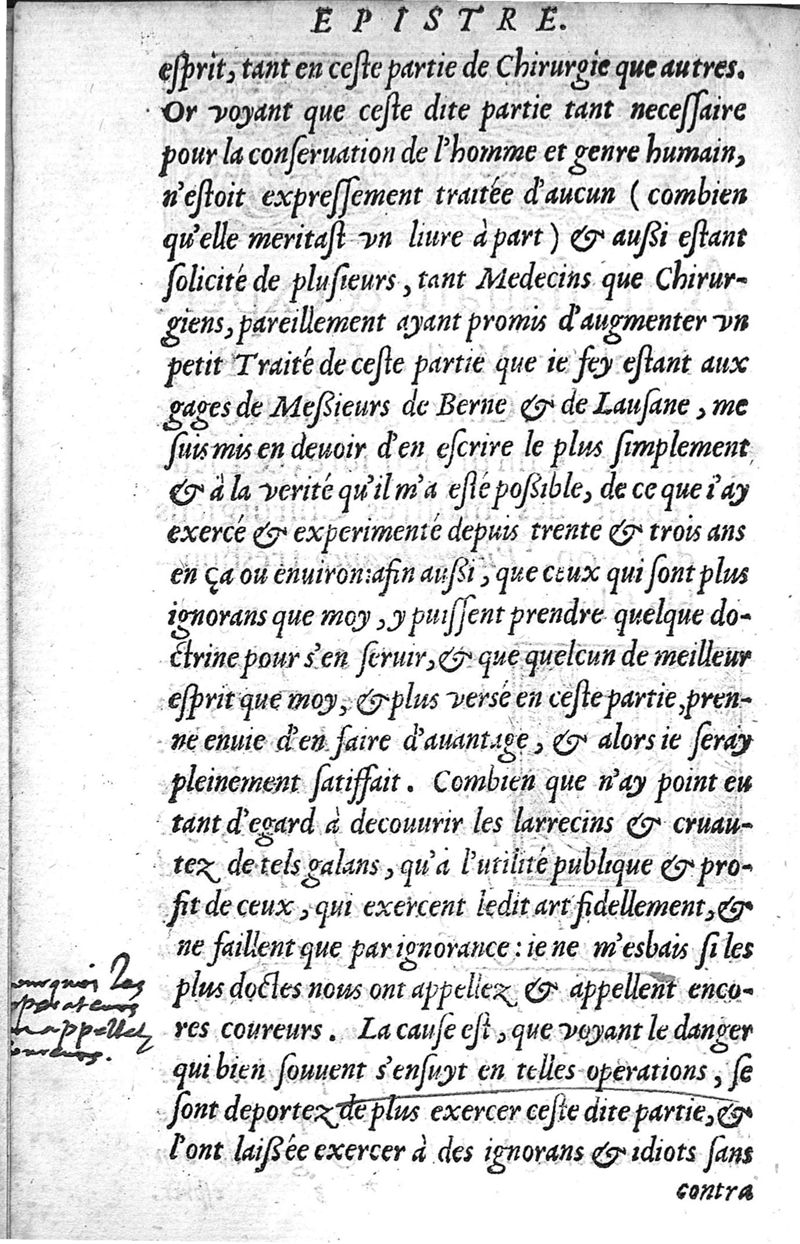 EPISTRE.
esprit, tant en ceste partie de Chirurgie que autres.
Or voyant que ceste dite partie tant necessaire
pour la conseruation de l'homme et genre humain,
n'estoit expressement traitée d'aucun (combien
qu'elle meritast vn liure à part) & außi estant
solicité de plusieurs, tant Medecins que Chirur-
giens, pareillement ayant promis d'augmenter vn
petit Traité de ceste partie que ie fey estant aux
gages de Meßieurs de Berne & de Lausane, me
suis mis en deuoir d'en escrire le plus simplement
& à la verité qu'il m'a esté poßible, de ce que i'ay
exercé & experimenté depuis trente & trois ans
en ça ou enuiron:afin außi, que ceux qui sont plus
ignorans que moy, y puissent prendre quelque do-
ctrine pour s'en seruir, & que quelcun de meilleur
esprit que moy, & plus versé en ceste partie, pren-
ne enuie d'en faire d'auantage, & alors ie seray
pleinement satisfait. Combien que n'ay point eu
tant d'egard à decouurir les larrecins & cruau-
tez de tels galans, qu'à l'utilité publique & pro-
fit de ceux, qui exercent ledit art fidellement, &
ne faillent que par ignorance: ie ne m'esbais si les
plus doctes nous ont appellez & appellent enco-
res coureurs. La cause est, que voyant le danger
qui bien souuent s'ensuyt en telles operations, se
sont deportez de plus exercer ceste dite partie, &
l'ont laißée exercer à des ignorans & idiots sans
contra
ourquoi les
perateurs
appellet
oureurs.